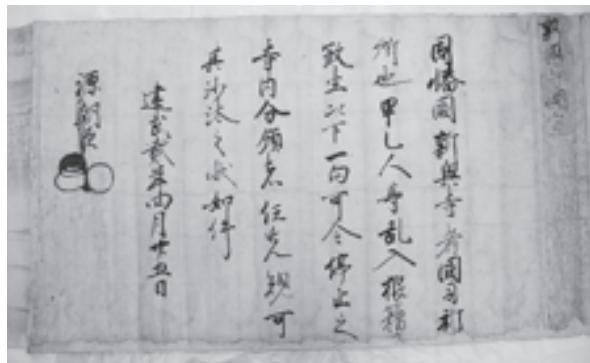 因幡国新興寺者国司祈
所也甲乙人等乱入狼藉
致生以下一向可令停止之
寺内分領者任先規可
其沙汰之状如件
建武弐年四月廿五日
源朝臣